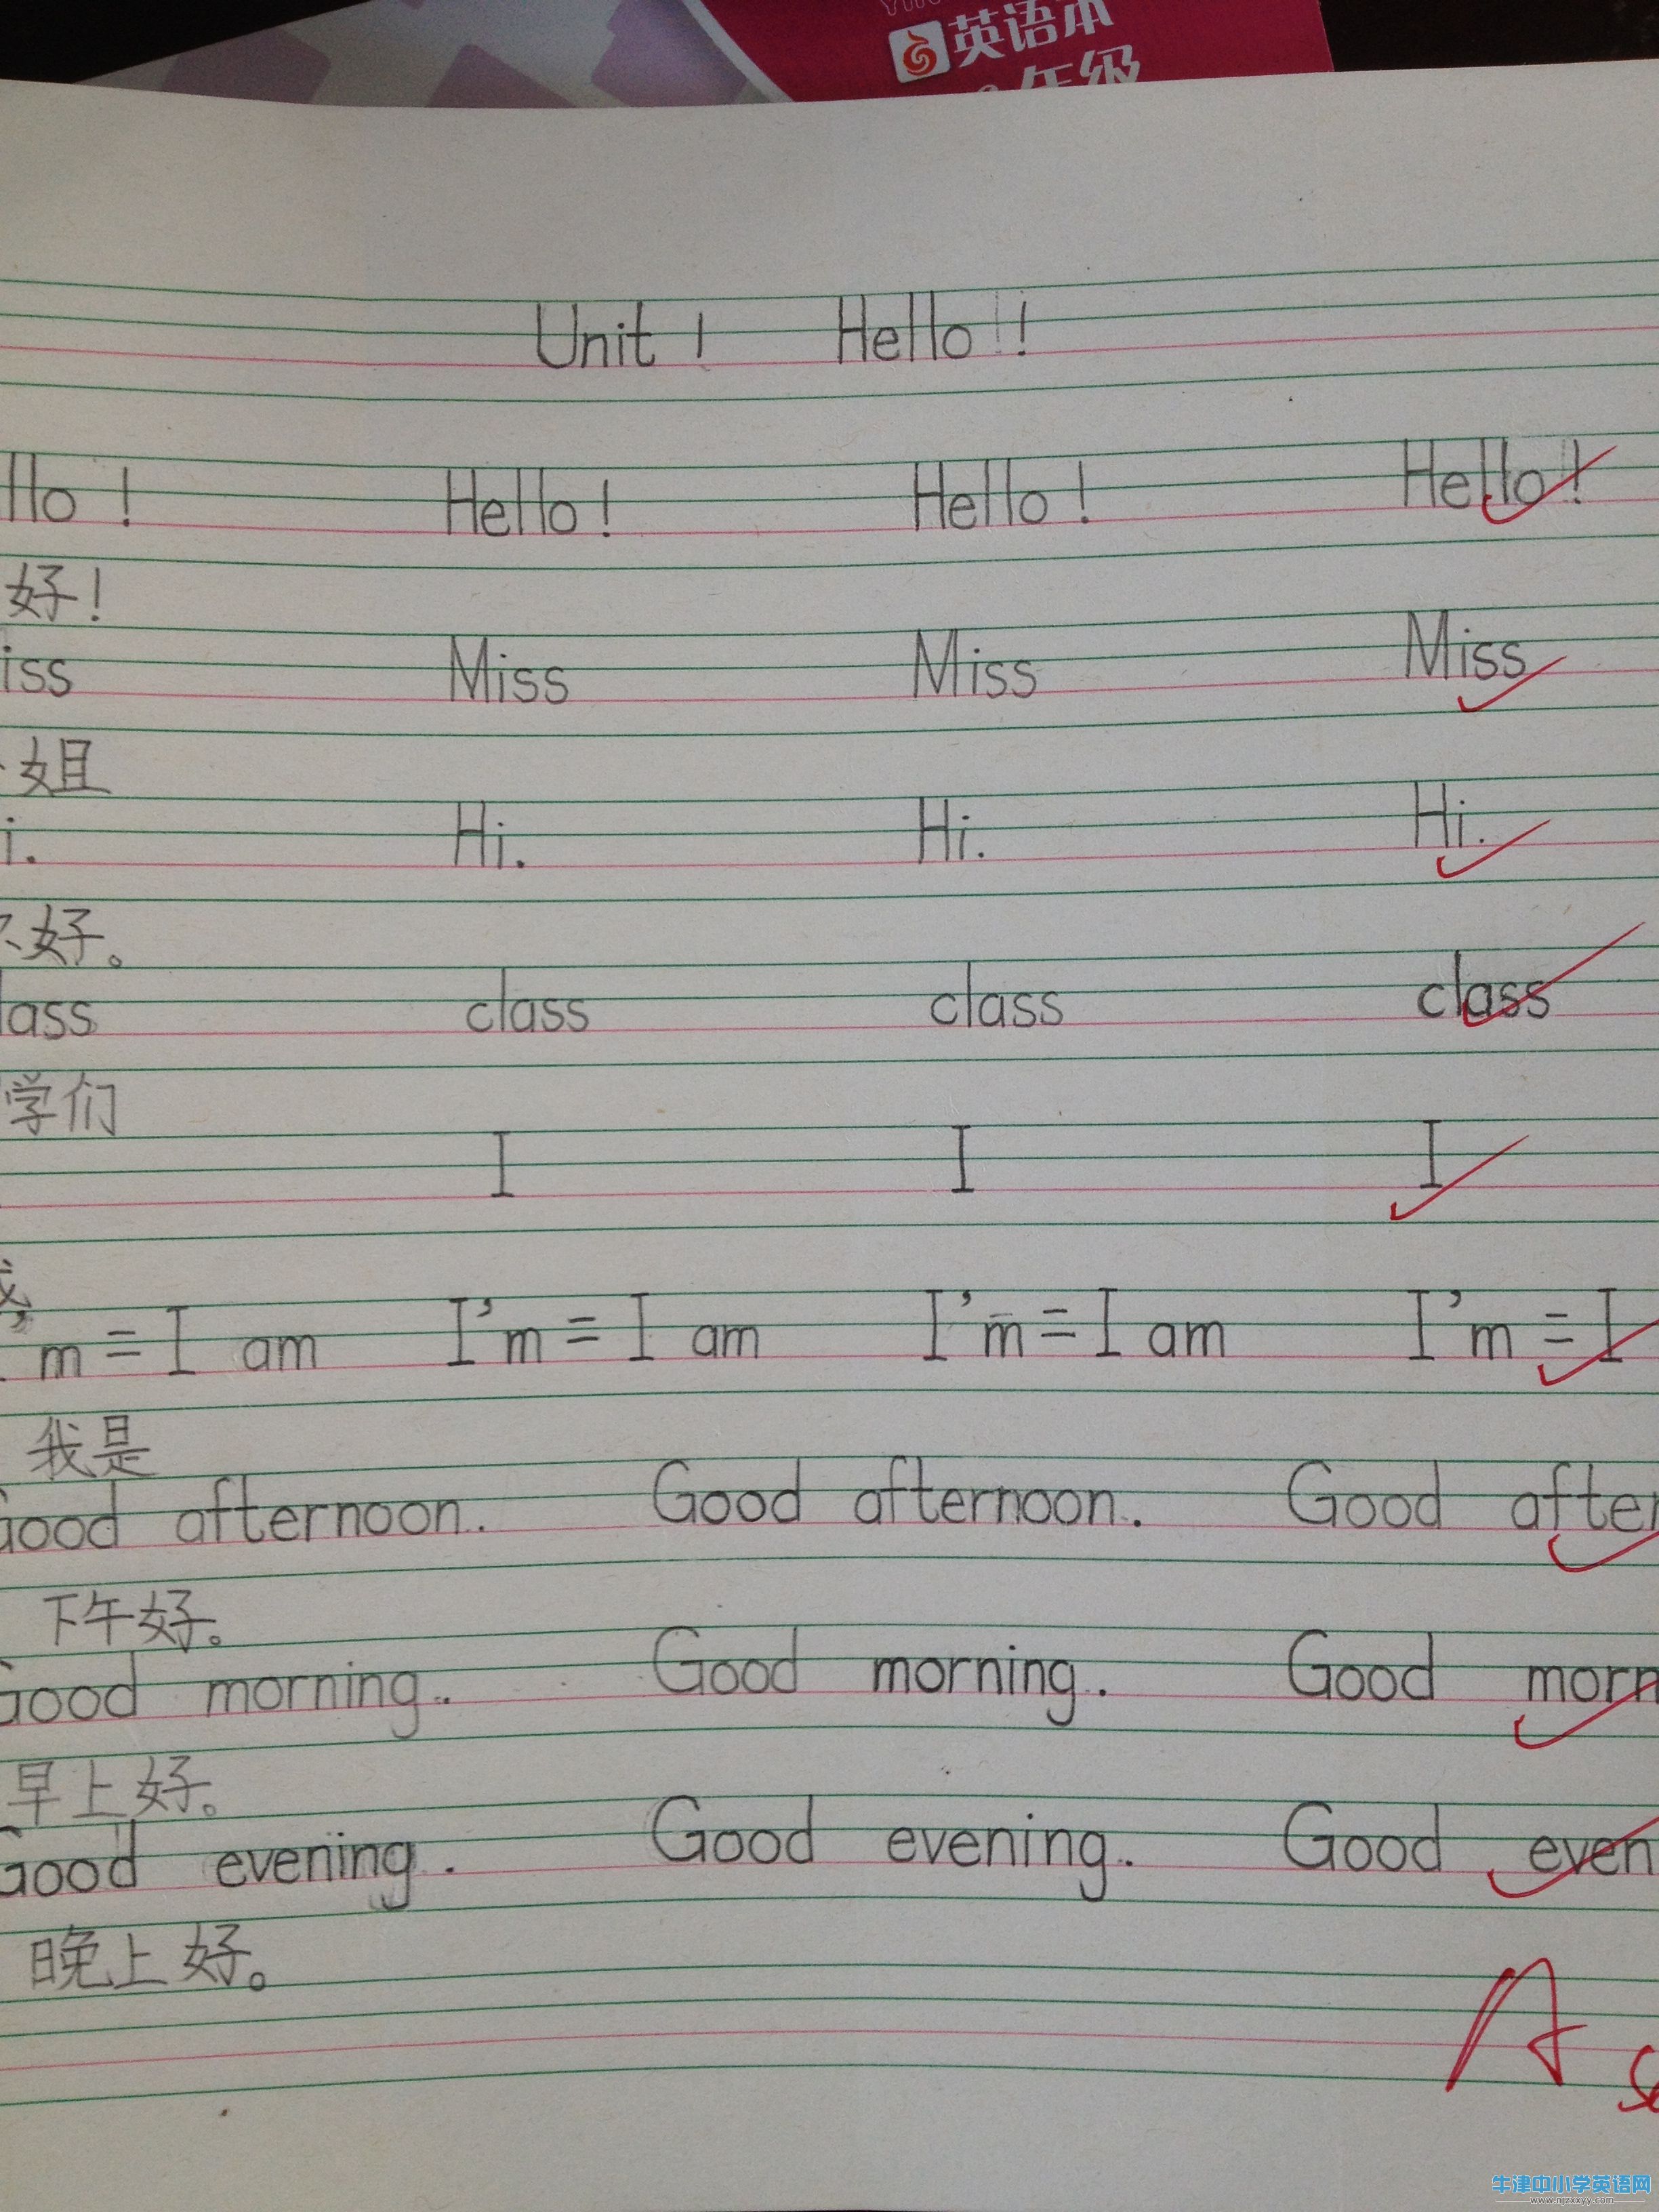 英语本
年级
Unit 1 Hello!
llo! Hello! Hello! Hello!
好!
iss Miss Miss Miss
姐
i. Hi. Hi. Hi.
好。
lass class class class
学们
I I I
我
'm = I am I'm = I am I'm = I am I'm = I
我是
Good afternoon. Good afternoon. Good after
下午好。
Good morning. Good morning. Good morn
早上好。
Good evening. Good evening. Good even
晚上好。
A
牛津中小学英语网
www.njzxxyy.com